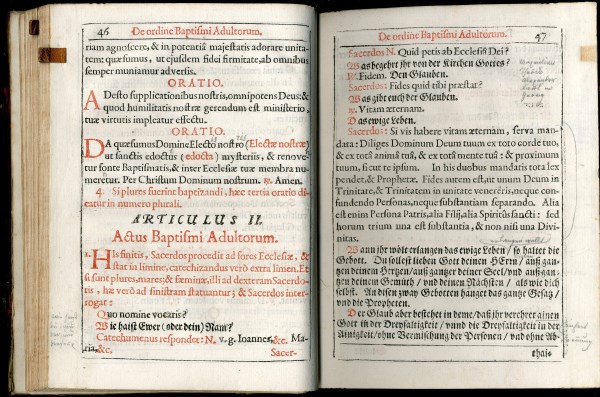 46 De ordine Baptismi Adultorum.
riam agnoscere, & in potentiâ majestatis adorare unita-
tem: quæsumus, ut ejusdem fidei firmitate, ab omnibus
semper muniamur adversis.
ORATIO.
ADesto supplicationibus nostris, omnipotens Deus: &
quod humilitatis nostræ gerendum est ministerio,
tuæ virtutis impleatur effectu.
ORATIO.
DA quæsumus Domine Electo nostro (Electæ nostræ)
ut sanctis edoctus (edocta) mysteriis, & renove-
tur fonte Baptismatis, & inter Ecclesiæ tuæ membra nu-
meretur. Per Christum Dominum nostrum. ℟. Amen.
4. Si plures fuerint baptizandi, hæc tertia oratio di-
catur in numero plurali.
ARTICULUS II.
Actus Baptismi Adultorum.
1. HIs finitis, Sacerdos procedit ad fores Ecclesiæ, &
stat in limine, catechizandus verò extra limen. Et
si sunt plures, mares, & fæminæ, illi ad dexteram Sacerdo-
tis, hæ verò ad sinistram statuantur; & Sacerdos inter-
rogat:
Quo nomine vocaris?
Wie haist Ewer (oder dein) Nam?
Catechumenus respondet: N. v. g. Ioannes, &c. Ma-
ria, &c.
Sacer-
De ordine Baptismi Adultorum. 47
Sacerdos N. Quid petis ab Ecclesiâ Dei?
Was begehrt jhr von der Kirchen Gottes?
℟. Fidem. Den Glauben.
Sacerdos: Fides quid tibi præstat?
Was gibt euch der Glauben.
℟. Vitam æternam.
Das ewige Leben.
Sacerdos: Si vis habere vitam æternam, serva man-
data: Diliges Dominum Deum tuum ex toto corde tuo,
& ex totâ animâ tuâ, & ex totâ mente tuâ: & proximum
tuum, sicut te ipsum. In his duobus mandatis tota lex
pendet, & Prophetæ. Fides autem est, ut unum Deum in
Trinitate, & Trinitatem in unitate venereris, neque con-
fundendo Personas, neque substantiam separando. Alia
est enim Persona Patris, alia Filij, alia Spiritûs sancti: sed
horum trium una est substantia, & non nisi una Divi-
nitas.
Wann jhr wölt erlangen das ewige Leben / so haltet die
Gebott. Du sollest lieben Gott deinen HErrn / auß gan-
tzem deinem Hertzen / auß gantzer deiner Seel / und auß gan-
tzem deinem Gemüth / und deinen Nächsten / als wie dich
selbst. An disen zway Gebotten hanget das gantze Gesatz /
und die Propheten.
Der Glaub aber bestehet in deme / daß jhr verehret einen
Gott in der Dreyfaltigkeit / vnnd die Dreyfaltigkeit in der
Ainigkeit / ohne Vermischung der Personen / vnd ohne Ab-
thai-